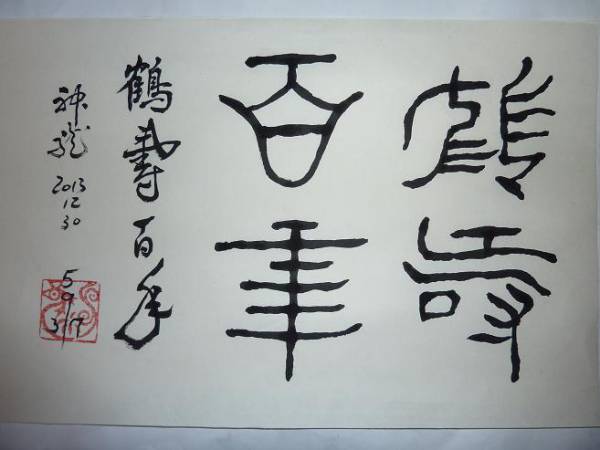 鶴壽
百年
鶴壽百年
神龍
2013
12
30
59
317